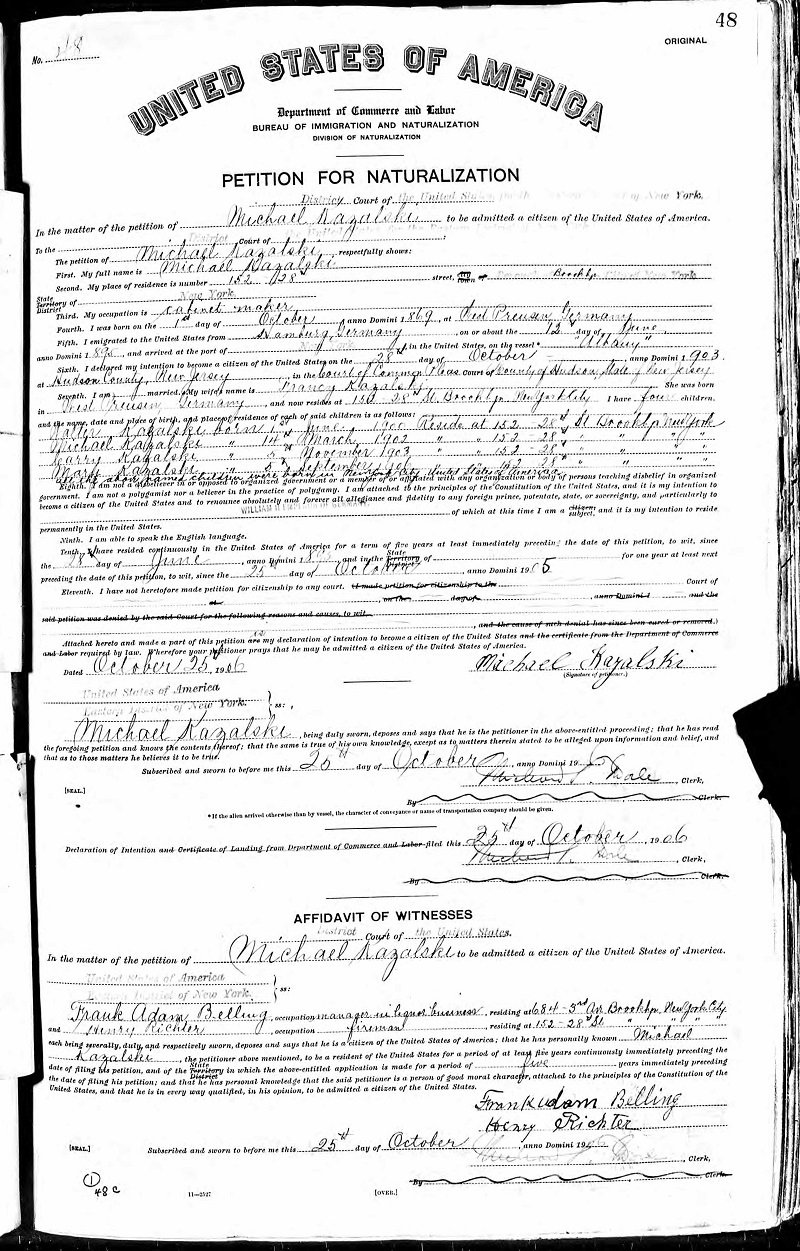 48
ORIGINAL
No. 48
UNITED STATES OF AMERICA
Department of Commerce and Labor
BUREAU OF IMMIGRATION AND NATURALIZATION
DIVISION OF NATURALIZATION
PETITION FOR NATURALIZATION
District Court of the United States of New York.
In the matter of the petition of Michael Kazalski to be admitted a citizen of the United States of America.
To the District Court of :
The petition of Michael Kazalski, respectfully shows:
First. My full name is Michael Kazalski
Second. My place of residence is number 152 28th street, Brooklyn City of New York
State Territory District of New York
Third. My occupation is cabinet maker
Fourth. I was born on the 1st day of October, anno Domini 1869, at West Preusen Germany
Fifth. I emigrated to the United States from Hamburg, Germany on or about the 12 day of June,
anno Domini 1893, and arrived at the port of New York, in the United States, on the vessel* "Albany"
Sixth. I declared my intention to become a citizen of the United States on the 28th day of October, anno Domini 1903,
at Hudson County, New Jersey, in the Court of Common Pleas Court of County of Hudson, State of New Jersey
Seventh. I am married. My wife's name is Francy Kazalski. She was born
in West Preusen Germany and now resides at 152 28th St. Brooklyn New York City I have four children,
and the name, date and place of birth, and place of residence of each of said children is as follows:
Kazalski born 1st June 1900 Reside at 152-28th St Brooklyn New York
Michael Kazalski " 14th March 1902 " " 152-28th " " "
Harry Kazalski " November 1903 " " 152-28th " " "
Mary Kazalski " September " 152-28th " " "
all the above named children were born in New York City, United States of America
Eighth. I am not a disbeliever in or opposed to organized government or a member of or affiliated with any organization or body of persons teaching disbelief in organized
government. I am not a polygamist nor a believer in the practice of polygamy. I am attached to the principles of the Constitution of the United States, and it is my intention to
become a citizen of the United States and to renounce absolutely and forever all allegiance and fidelity to any foreign prince, potentate, state, or sovereignty, and particularly to
WILLIAM II EMPEROR OF GERMANY of which at this time I am a citizen subject, and it is my intention to reside
permanently in the United States.
Ninth. I am able to speak the English language.
Tenth. I have resided continuously in the United States of America for a term of five years at least immediately preceding the date of this petition, to wit, since
the 28 day of June, anno Domini 1893, and in the State Territory District of for one year at least next
preceding the date of this petition, to wit, since the 25 day of October, anno Domini 1905.
Eleventh. I have not heretofore made petition for citizenship to any court. (I made petition for citizenship to the Court of
at , on the day of , anno Domini 1 and the
said petition was denied by the said Court for the following reasons and causes, to wit,
, and the cause of such denial has since been cured or removed.)
Attached hereto and made a part of this petition are is my declaration of intention to become a citizen of the United States and the certificate from the Department of Commerce
and Labor required by law. Wherefore your petitioner prays that he may be admitted a citizen of the United States of America.
Dated October 25th, 1906
Michael Kazalski
(Signature of petitioner.)
United States of America
Eastern District of New York. } ss:
Michael Kazalski, being duly sworn, deposes and says that he is the petitioner in the above-entitled proceeding; that he has read
the foregoing petition and knows the contents thereof; that the same is true of his own knowledge, except as to matters therein stated to be alleged upon information and belief, and
that as to those matters he believes it to be true.
Subscribed and sworn to before me this 25th day of October, anno Domini 19
, Clerk,
[SEAL.]
By , Clerk.
*If the alien arrived otherwise than by vessel, the character of conveyance or name of transportation company should be given.
Declaration of Intention and Certificate of Landing from Department of Commerce and Labor filed this 25th day of October, 1906
, Clerk,
By , Clerk.
AFFIDAVIT OF WITNESSES
District Court of the United States.
In the matter of the petition of Michael Kazalski to be admitted a citizen of the United States of America.
United States of America
Eastern District of New York. } ss:
Frank Adam Belling, occupation manager in liquor business, residing at 684-3rd Av. Brooklyn, New York City
and Henry Richter, occupation fireman, residing at 152-28th St " "
each being severally, duly, and respectively sworn, deposes and says that he is a citizen of the United States of America; that he has personally known Michael
Kazalski, the petitioner above mentioned, to be a resident of the United States for a period of at least five years continuously immediately preceding the
date of filing his petition, and of the State Territory District in which the above application is made for a period of five years immediately preceding
the date of filing his petition; and that he has personal knowledge that the said petitioner is a person of good moral character, attached to the principles of the Constitution of the
United States, and that he is in every way qualified, in his opinion, to be admitted a citizen of the United States.
Frank Adam Belling
Henry Richter
[SEAL.] Subscribed and sworn to before me this 25th day of October, anno Domini 1906
, Clerk,
By , Clerk.
1
48 c
11—2527
[OVER.]